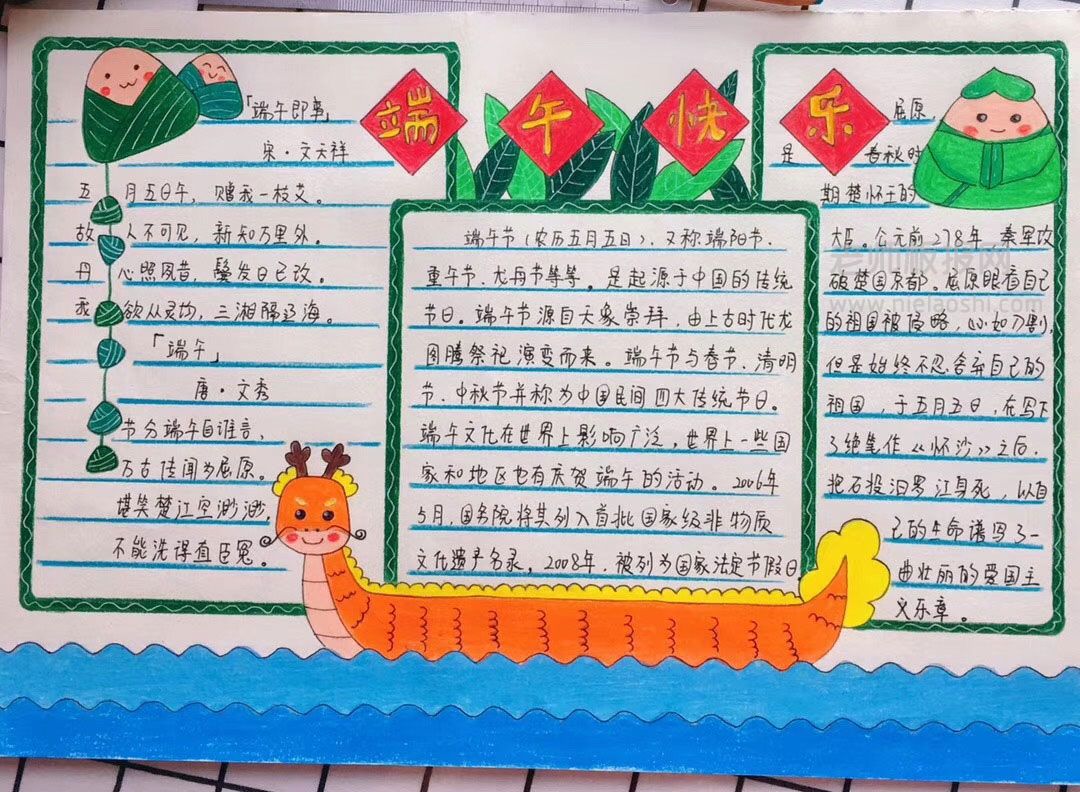 端午快乐
「端午即事」
宋·文天祥
五月五日午，赠我一枝艾。
故人不可见，新知万里外。
丹心照夙昔，鬓发日已改。
我欲从灵均，三湘隔辽海。
「端午」
唐·文秀
节分端午自谁言，
万古传闻为屈原。
堪笑楚江空渺渺，
不能洗得直臣冤。
端午节（农历五月五日），又称端阳节、
重午节、龙舟节等等。是起源于中国的传统
节日。端午节源自天象崇拜，由上古时代龙
图腾祭祀演变而来。端午节与春节、清明
节、中秋节并称为中国民间四大传统节日。
端午文化在世界上影响广泛，世界上一些国
家和地区也有庆贺端午的活动。2006年
5月，国务院将其列入首批国家级非物质
文化遗产名录。2008年，被列为国家法定节假日
屈原，
是春秋时
期楚怀王的
大臣。公元前278年，秦军攻
破楚国京都。屈原眼看自己
的祖国被侵略，心如刀割，
但是始终不忍舍弃自己的
祖国，于五月五日，在写下
了绝笔作《怀沙》之后，
抱石投汨罗江身死，以自
己的生命谱写了一
曲壮丽的爱国主
义乐章。
老师板报网
www.nielaoshi.com